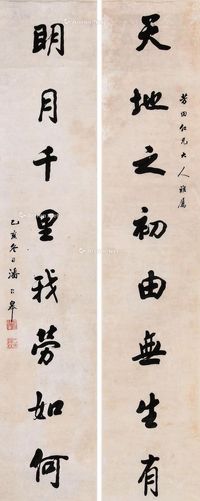 天地之初由無生有
芳田仁兄大人雅属
明月千里我勞如何
乙亥冬日潘齡皋